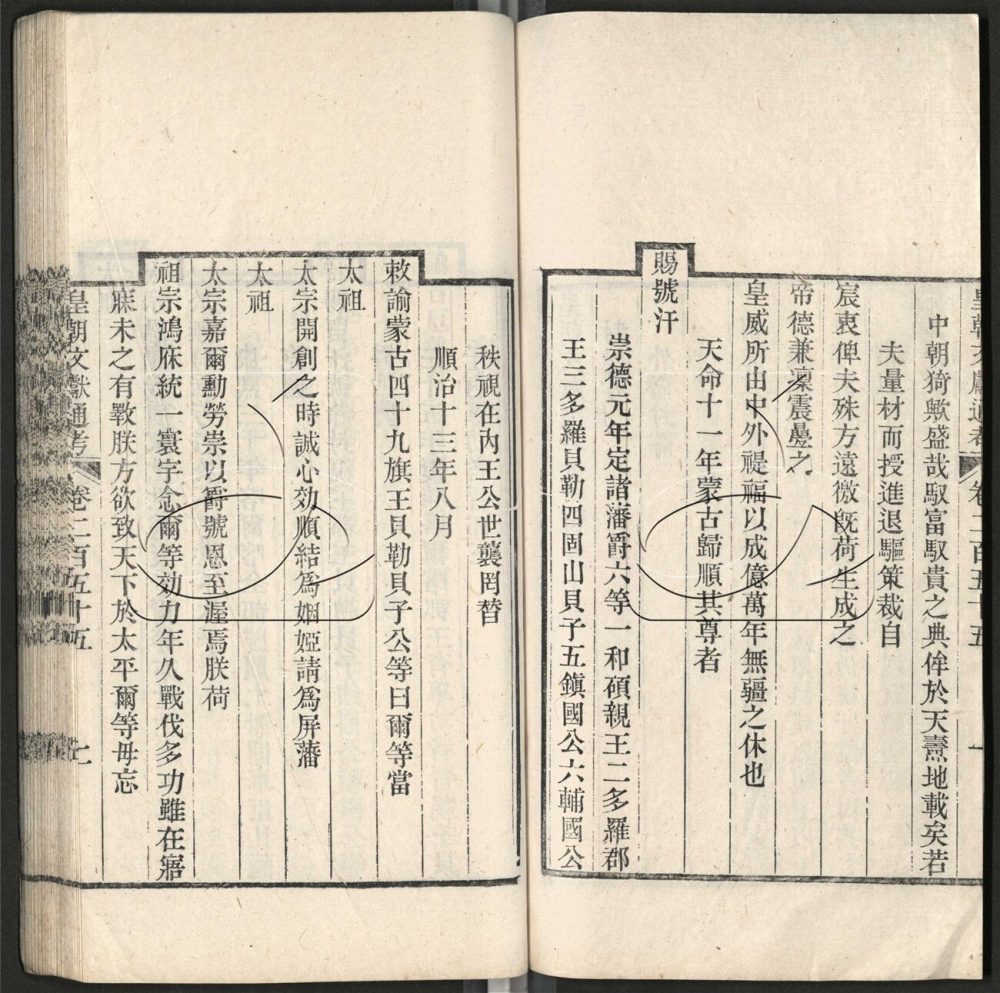 皇朝文獻通考 卷二百五十五
中朝猗歟盛哉馭富馭貴之典侔於天燾地載矣若
夫量材而授進退驅策裁自
宸衷俾夫殊方遠徼旣荷生成之
帝德兼凜震疊之
皇威所由中外禔福以成億萬年無疆之休也
天命十一年蒙古歸順其尊者
賜號汗
崇德元年定諸藩爵六等一和碩親王二多羅郡
王三多羅貝勒四固山貝子五鎮國公六輔國公
秩視在內王公世襲罔替
順治十三年八月
敕諭蒙古四十九旗王貝勒貝子公等曰爾等當
太祖
太宗開創之時誠心効順結爲姻婭請爲屏藩
太祖
太宗嘉爾勳勞崇以爵號恩至渥焉朕荷
祖宗鴻庥統一寰宇念爾等効力年久戰伐多功雖在寤
寐未之有斁朕方欲致天下於太平爾等毋忘
皇朝文獻通考 卷二百五十五 七